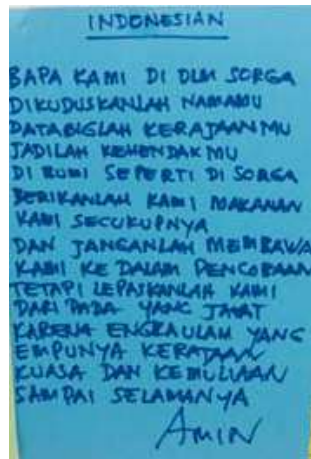 INDONESIAN
BAPA KAMI DI DLM SORGA
DIKUDUSKANLAH NAMAMU
DATABIGLAH KERAJAANMU
JADILAH KEHENDAKMU
DI BUMI SEPERTI DI SORGA
BERIKANLAH KAMI MAKANAN
KAMI SECUKUPNYA
DAN JANGANLAH MEMBAWA
KAMI KE DALAM PENCOBAAN
TETAPI LEPASKANLAH KAMI
DARI PADA YANG JAHAT
KARENA ENGKAULAH YANG
EMPUNYA KERAJAAN
KUASA DAN KEMULIAAN
SAMPAI SELAMANYA
AMIN